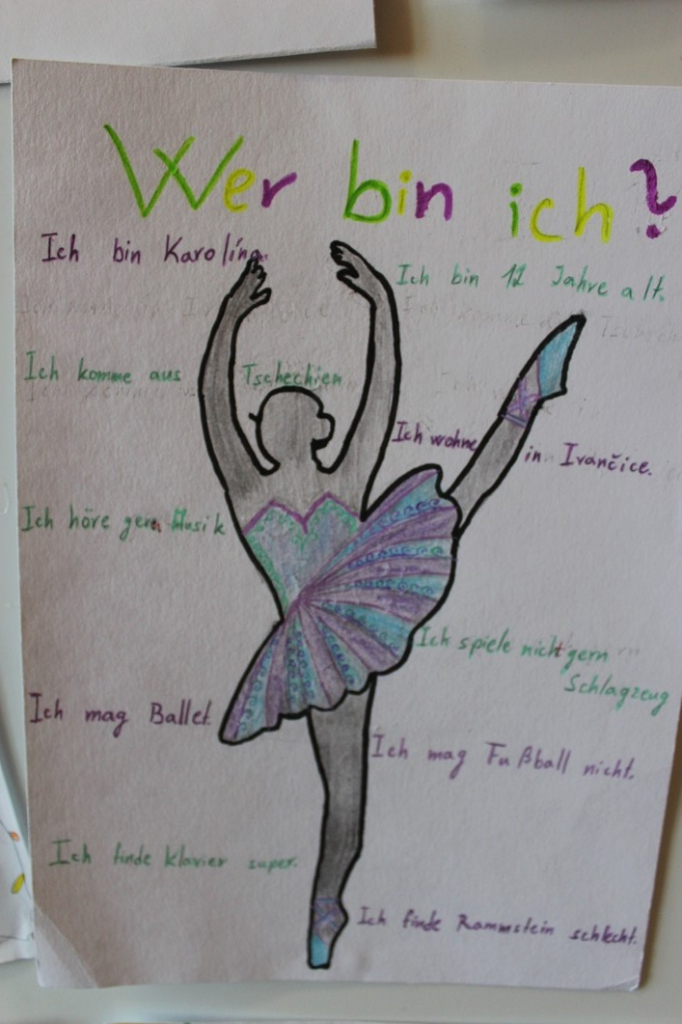 Wer bin ich?
Ich bin Karolína.
Ich bin 12 Jahre alt.
Ich komme aus Tschechien
Ich wohne in Ivančice.
Ich höre gern Musik
Ich spiele nicht gern
Schlagzeug
Ich mag Ballet.
Ich mag Fußball nicht.
Ich finde klavier super.
Ich finde Rammstein schlecht.